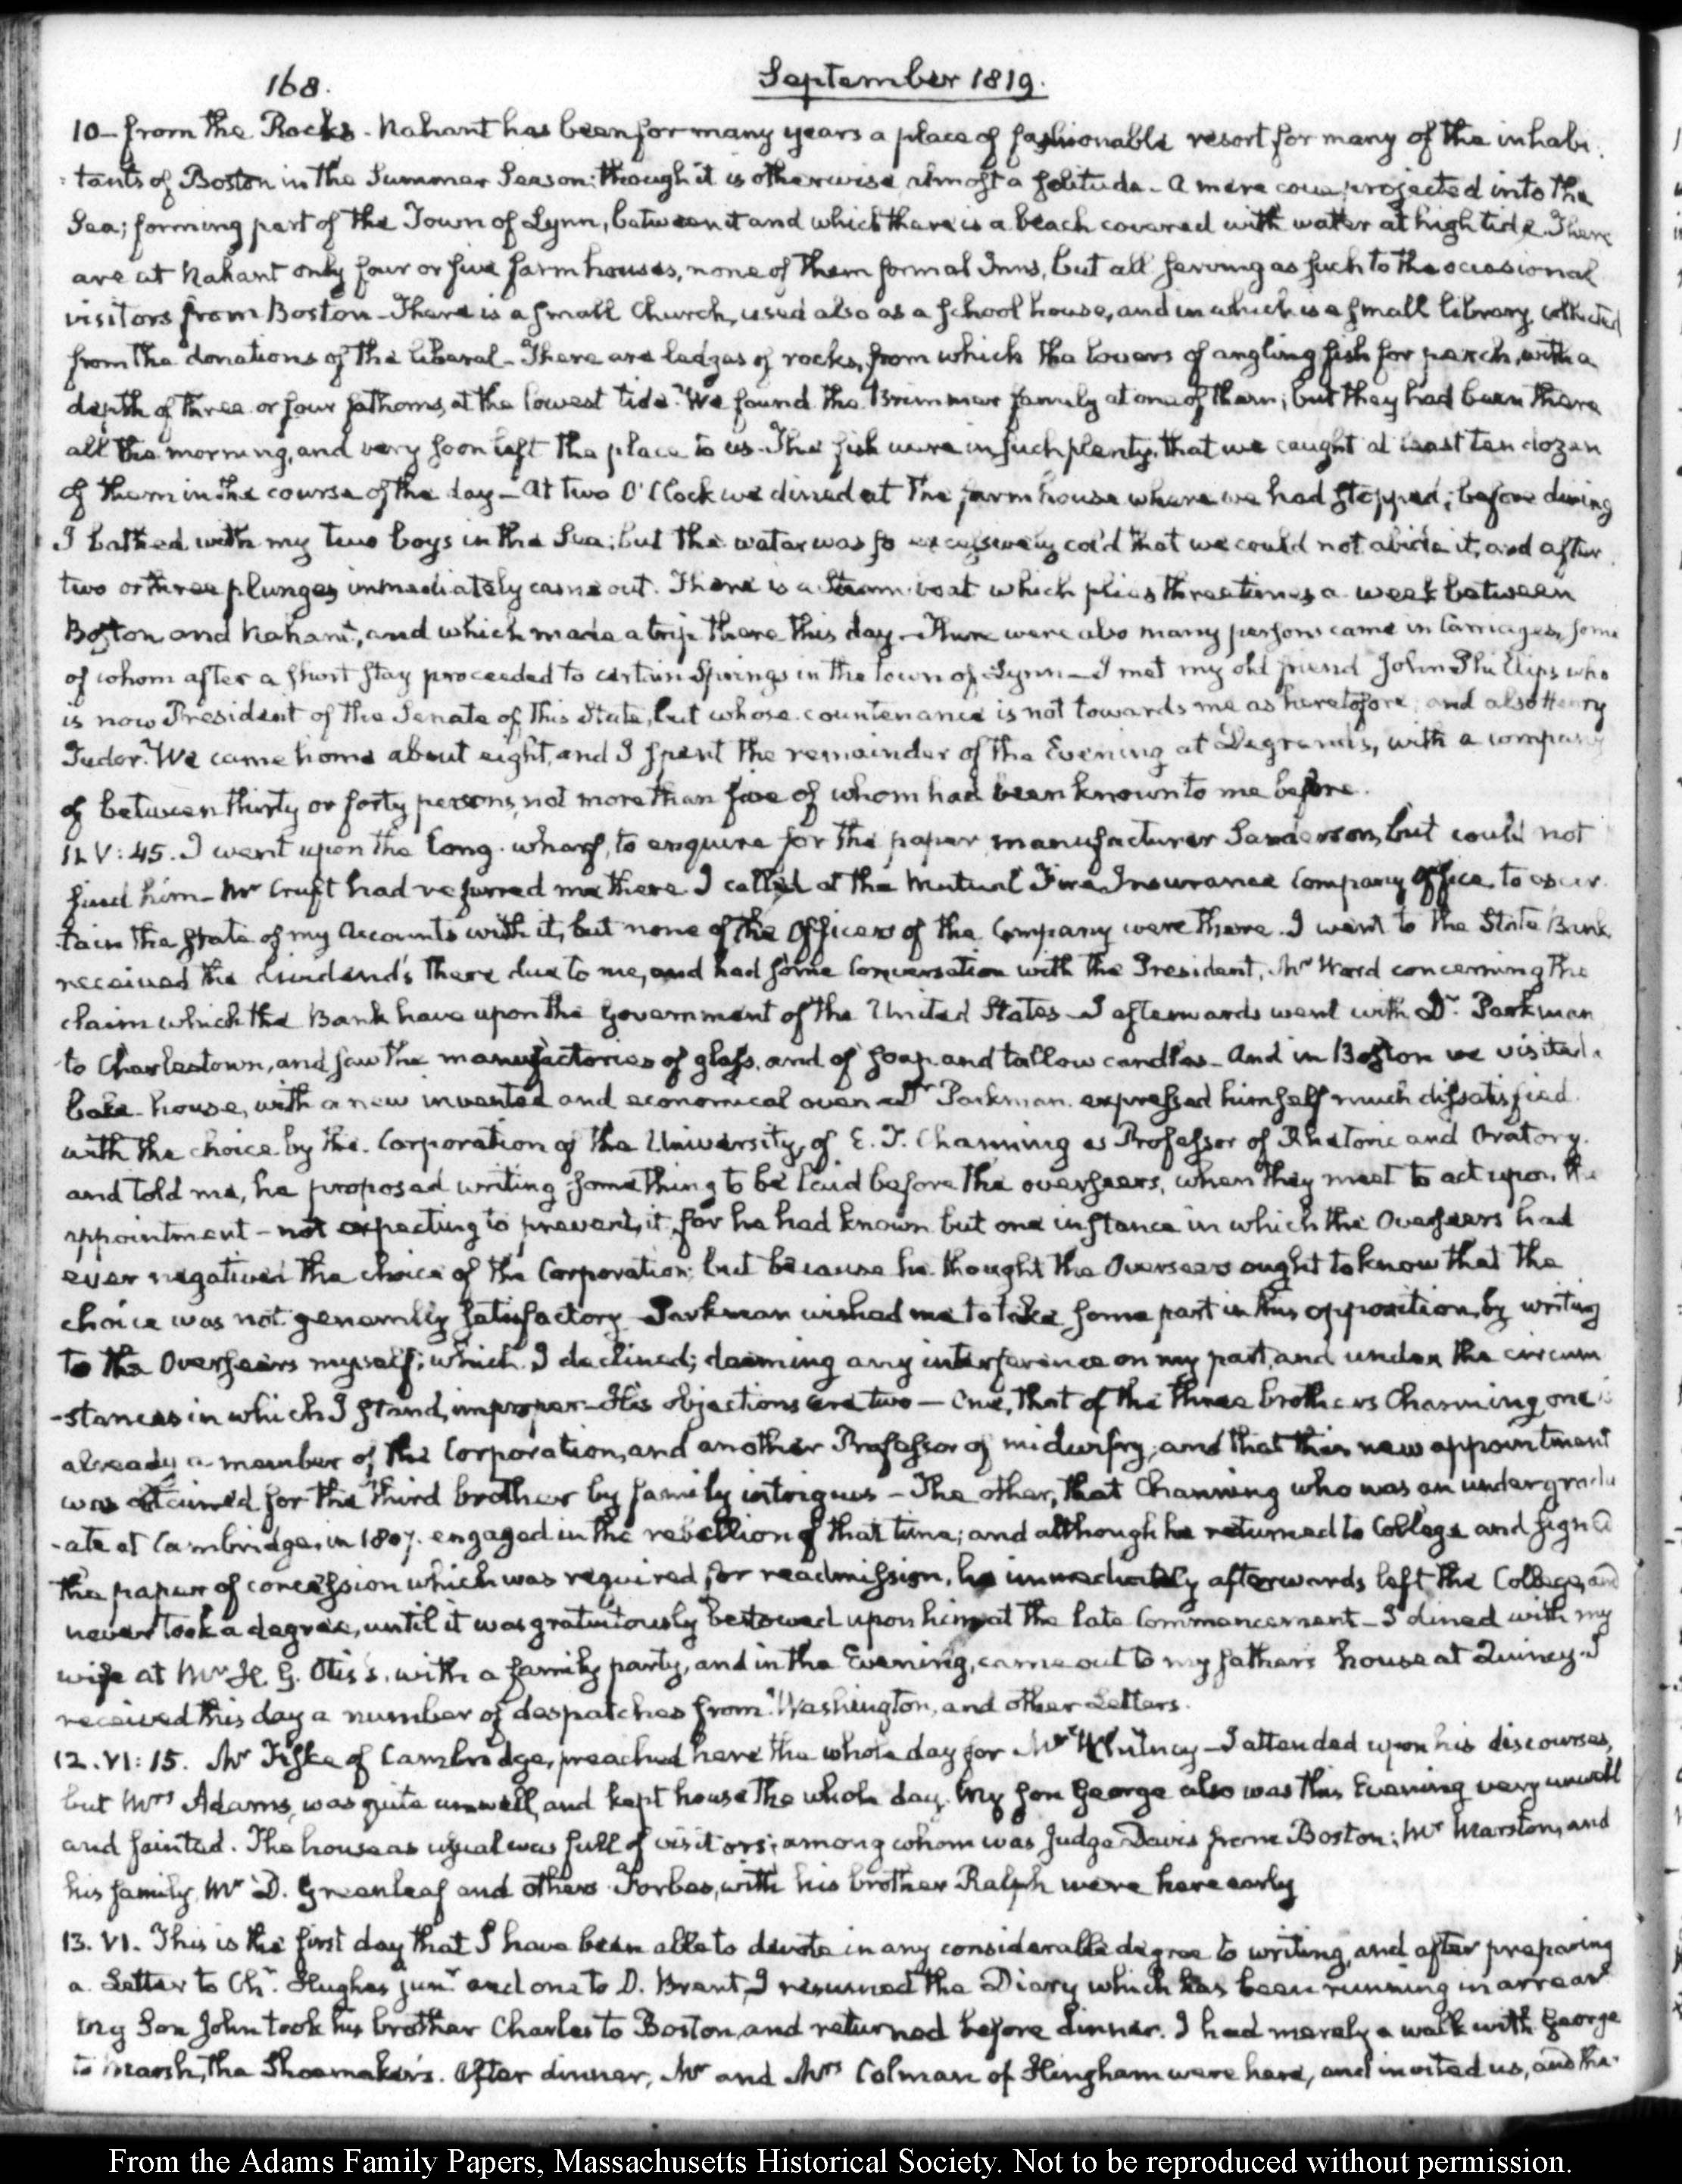 168.
September 1819.
10- from the Rocks. Nahant has been for many years a place of fashionable resort for many of the inhabi-
tants of Boston in the Summer Season: though it is otherwise almost a solitude - a mere cove projected into the
Sea; forming part of the Town of Lynn, between it and which there is a beach covered with water at high tide. There
are at Nahant only four or five farm houses, none of them formal Inns, but all serving as such to the occasional
visitors from Boston - There is a small Church, used also as a school house, and in which is a small library, collected
from the donations of the liberal - There are ledges of rocks, from which the lovers of angling fish for perch, with a
depth of three or four fathoms, at the lowest tide. We found the Brimmer family at one of them; but they had been there
all the morning, and very soon left the place to us. The fish were in such plenty, that we caught at least ten dozen
of them in the course of the day - At two O'Clock we dined at the farm house where we had stopped; before dining
I bathed with my two boys in the Sea; but the water was so excessively cold that we could not abide it, and after
two or three plunges immediately came out. There is a Steam-boat which plies three times a week between
Boston and Nahant, and which made a trip there this day - There were also many persons came in Carriages, some
of whom after a short stay proceeded to certain Springs in the town of Lynn - I met my old friend John Phillips who
is now President of the Senate of this State, but whose countenance is not towards me as heretofore; and also Henry
Tudor. We came home about eight, and I spent the remainder of the Evening at Degrand's, with a company
of between thirty or forty persons, not more than five of whom had been known to me before.
11. V: 45. I went upon the Long-wharf, to enquire for the paper manufacturer Sanderson, but could not
find him - Mr Cruft had referred me there. I called at the Mutual Fire Insurance Company Office, to ascer-
tain the state of my Accounts with it, but none of the Officers of the Company were there. I went to the State Bank,
received the dividends there due to me, and had some Conversation with the President, Mr Ward concerning the
claim which the Bank have upon the Government of the United States - I afterwards went with Dr. Parkman
to Charlestown, and saw the manufactories of glass, and of soap and tallow candles - And in Boston we visited a
bake-house, with a new invented and economical oven - Dr Parkman expressed himself much dissatisfied
with the choice by the Corporation of the University, of E. T. Channing as Professor of Rhetoric and Oratory.
and told me, he proposed writing something to be laid before the overseers, when they meet to act upon the
appointment - not expecting to prevent it, for he had known but one instance in which the Overseers had
ever negatived the choice of the Corporation; but because he thought the Overseers ought to know that the
choice was not generally satisfactory - Parkman wished me to take some part in this opposition, by writing
to the Overseers myself; which I declined; deeming any interference on my part, and under the circum
-stances in which I stand, improper - His objections are two - One, that of the three brothers Channing, one is
already a member of the Corporation, and another Professor of midwifry; and that this new appointment
was obtained for the third brother by family intrigues - The other, that Channing who was an undergradu
-ate at Cambridge, in 1807. engaged in the rebellion of that time; and although he returned to College and signed
the paper of concession which was required for readmission, he immediately afterwards left the College, and
never took a degree, until it was gratuitously bestowed upon him at the late Commencement - I dined with my
wife at Mr H. G. Otis's. with a family party, and in the Evening, came out to my father's house at Quincy. I
received this day a number of despatches from Washington, and other Letters.
12. VI: 15. Mr Fiske of Cambridge, preached here the whole day for Mr Whitney - I attended upon his discourses,
but Mrs Adams, was quite unwell, and kept house the whole day. My Son George also was this Evening very unwell
and fainted. The house as usual was full of visitors; among whom was Judge Davis from Boston; Mr Marston, and
his family, Mr D. Greenleaf and others. Forbes, with his brother Ralph were here early
13. VI. This is the first day that I have been able to devote in any considerable degree to writing, and after preparing
a Letter to Ch. Hughes junr and one to D. Brent, I resumed the Diary which has been running in arrear
My Son John took his brother Charles to Boston, and returned before dinner. I had merely a walk with George
to Marsh, the Shoemaker's. After dinner, Mr and Mrs Colman of Hingham were here, and invited us, and the
From the Adams Family Papers, Massachusetts Historical Society. Not to be reproduced without permission.